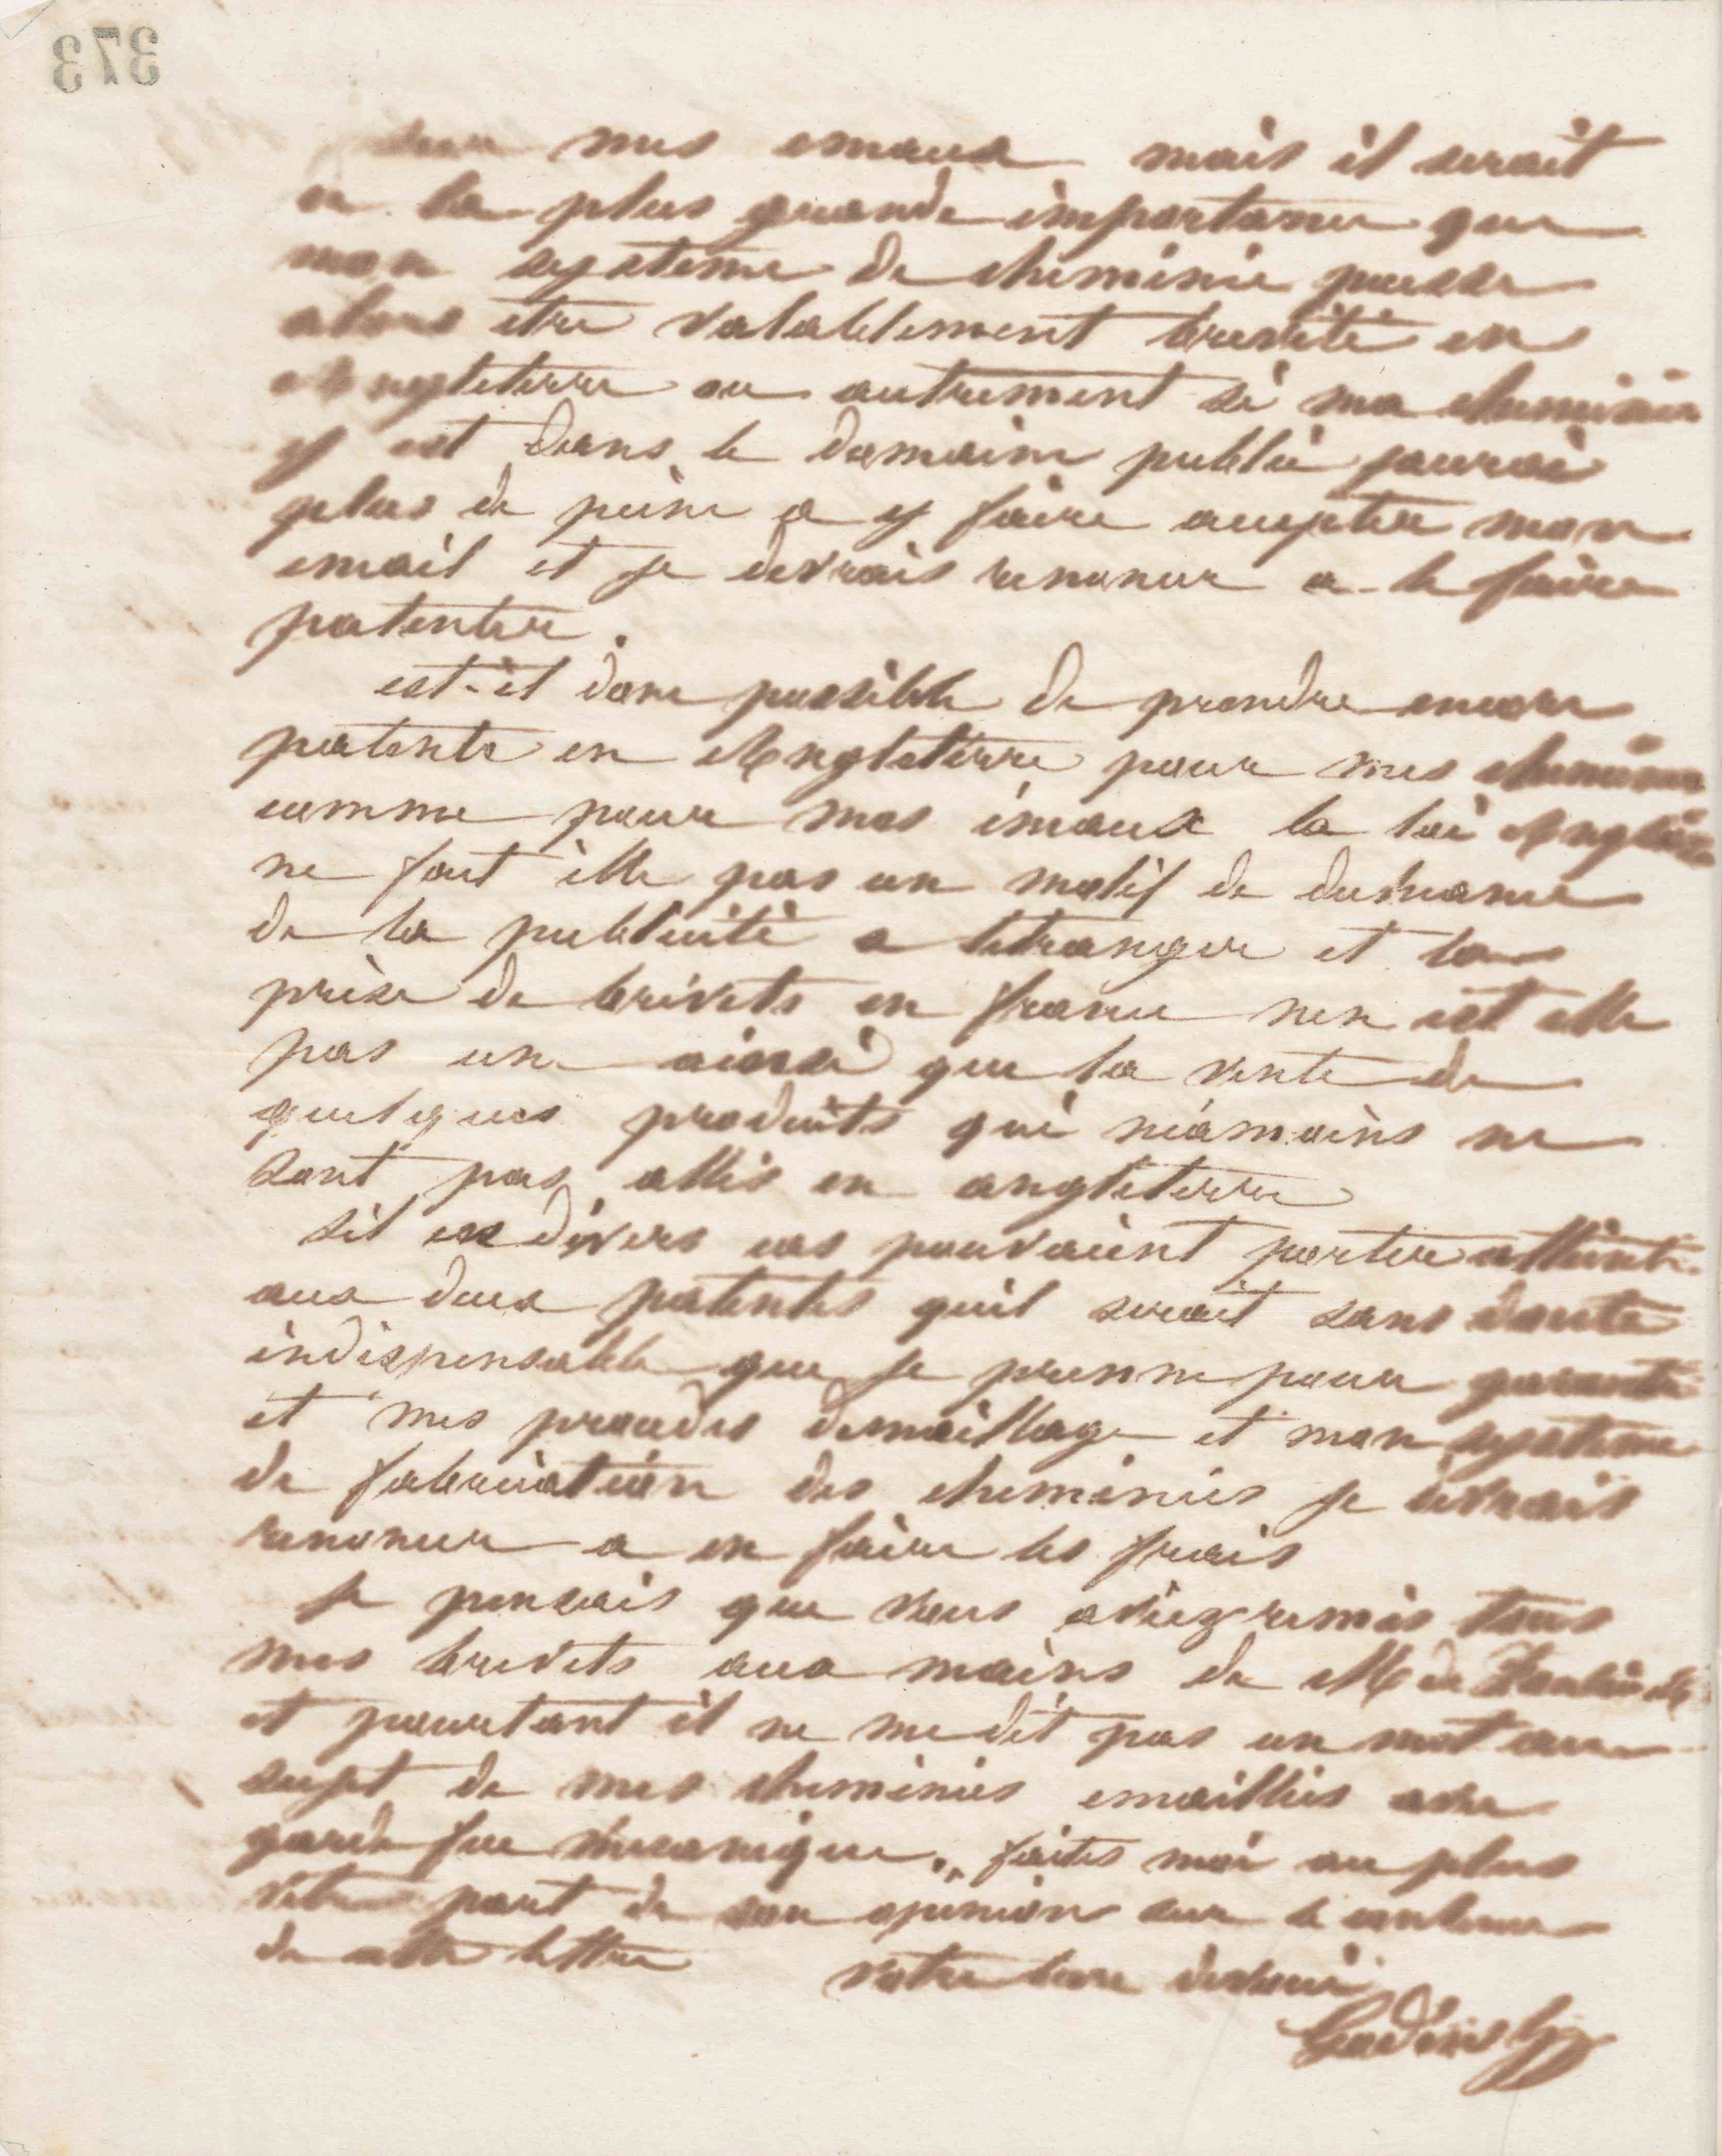 373
sur mes emaux mais il serait
de la plus grande importance que
mon systeme de cheminée puisse
alors etre valablement breveté en
Angleterre ou autrement si ma cheminée
y est dans le domaine public jaurai
plus de peine a y faire accepter mon
email et je devrais renoncer a le faire
patenter.
est-il donc possible de prendre encore
patente en Angleterre pour mes cheminées
comme pour mes émaux la loi Anglaise
ne fait elle pas un motif de decheance
de la publicité a letranger et la
prise de brevets en france nen est elle
pas un ainsi que la vente de
quelques produits qui néamoins ne
sont pas allés en angleterre
sil ces divers cas pouvaient porter atteinte
aux deux patentes quil serait sans doute
indispensable que je prenne pour garantir
et mes procédés demaillage et mon systeme
de fabrication des cheminées je devrais
renoncer a en faire les frais
je pensais que vous aviez remis tous
mes brevets aux mains de M de
et pourtant il ne me dit pas un mot au
sujet de mes cheminées emaillées avec
garde feu mecanique. faites moi au plus
vite part de son opinion sur le contenu
de cette lettre votre bien dévoué
Godin